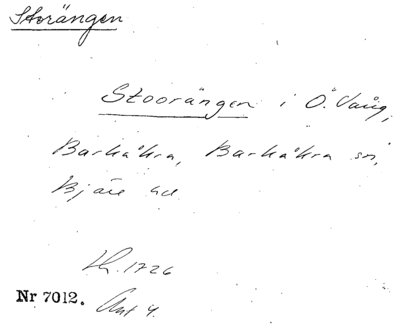 Storängen
Stoorängen i Ö. Vång,
Barkåkra, Barkåkra sn,
Bjäre hd
Lh. 1726
Nr 7012. Akt 4.